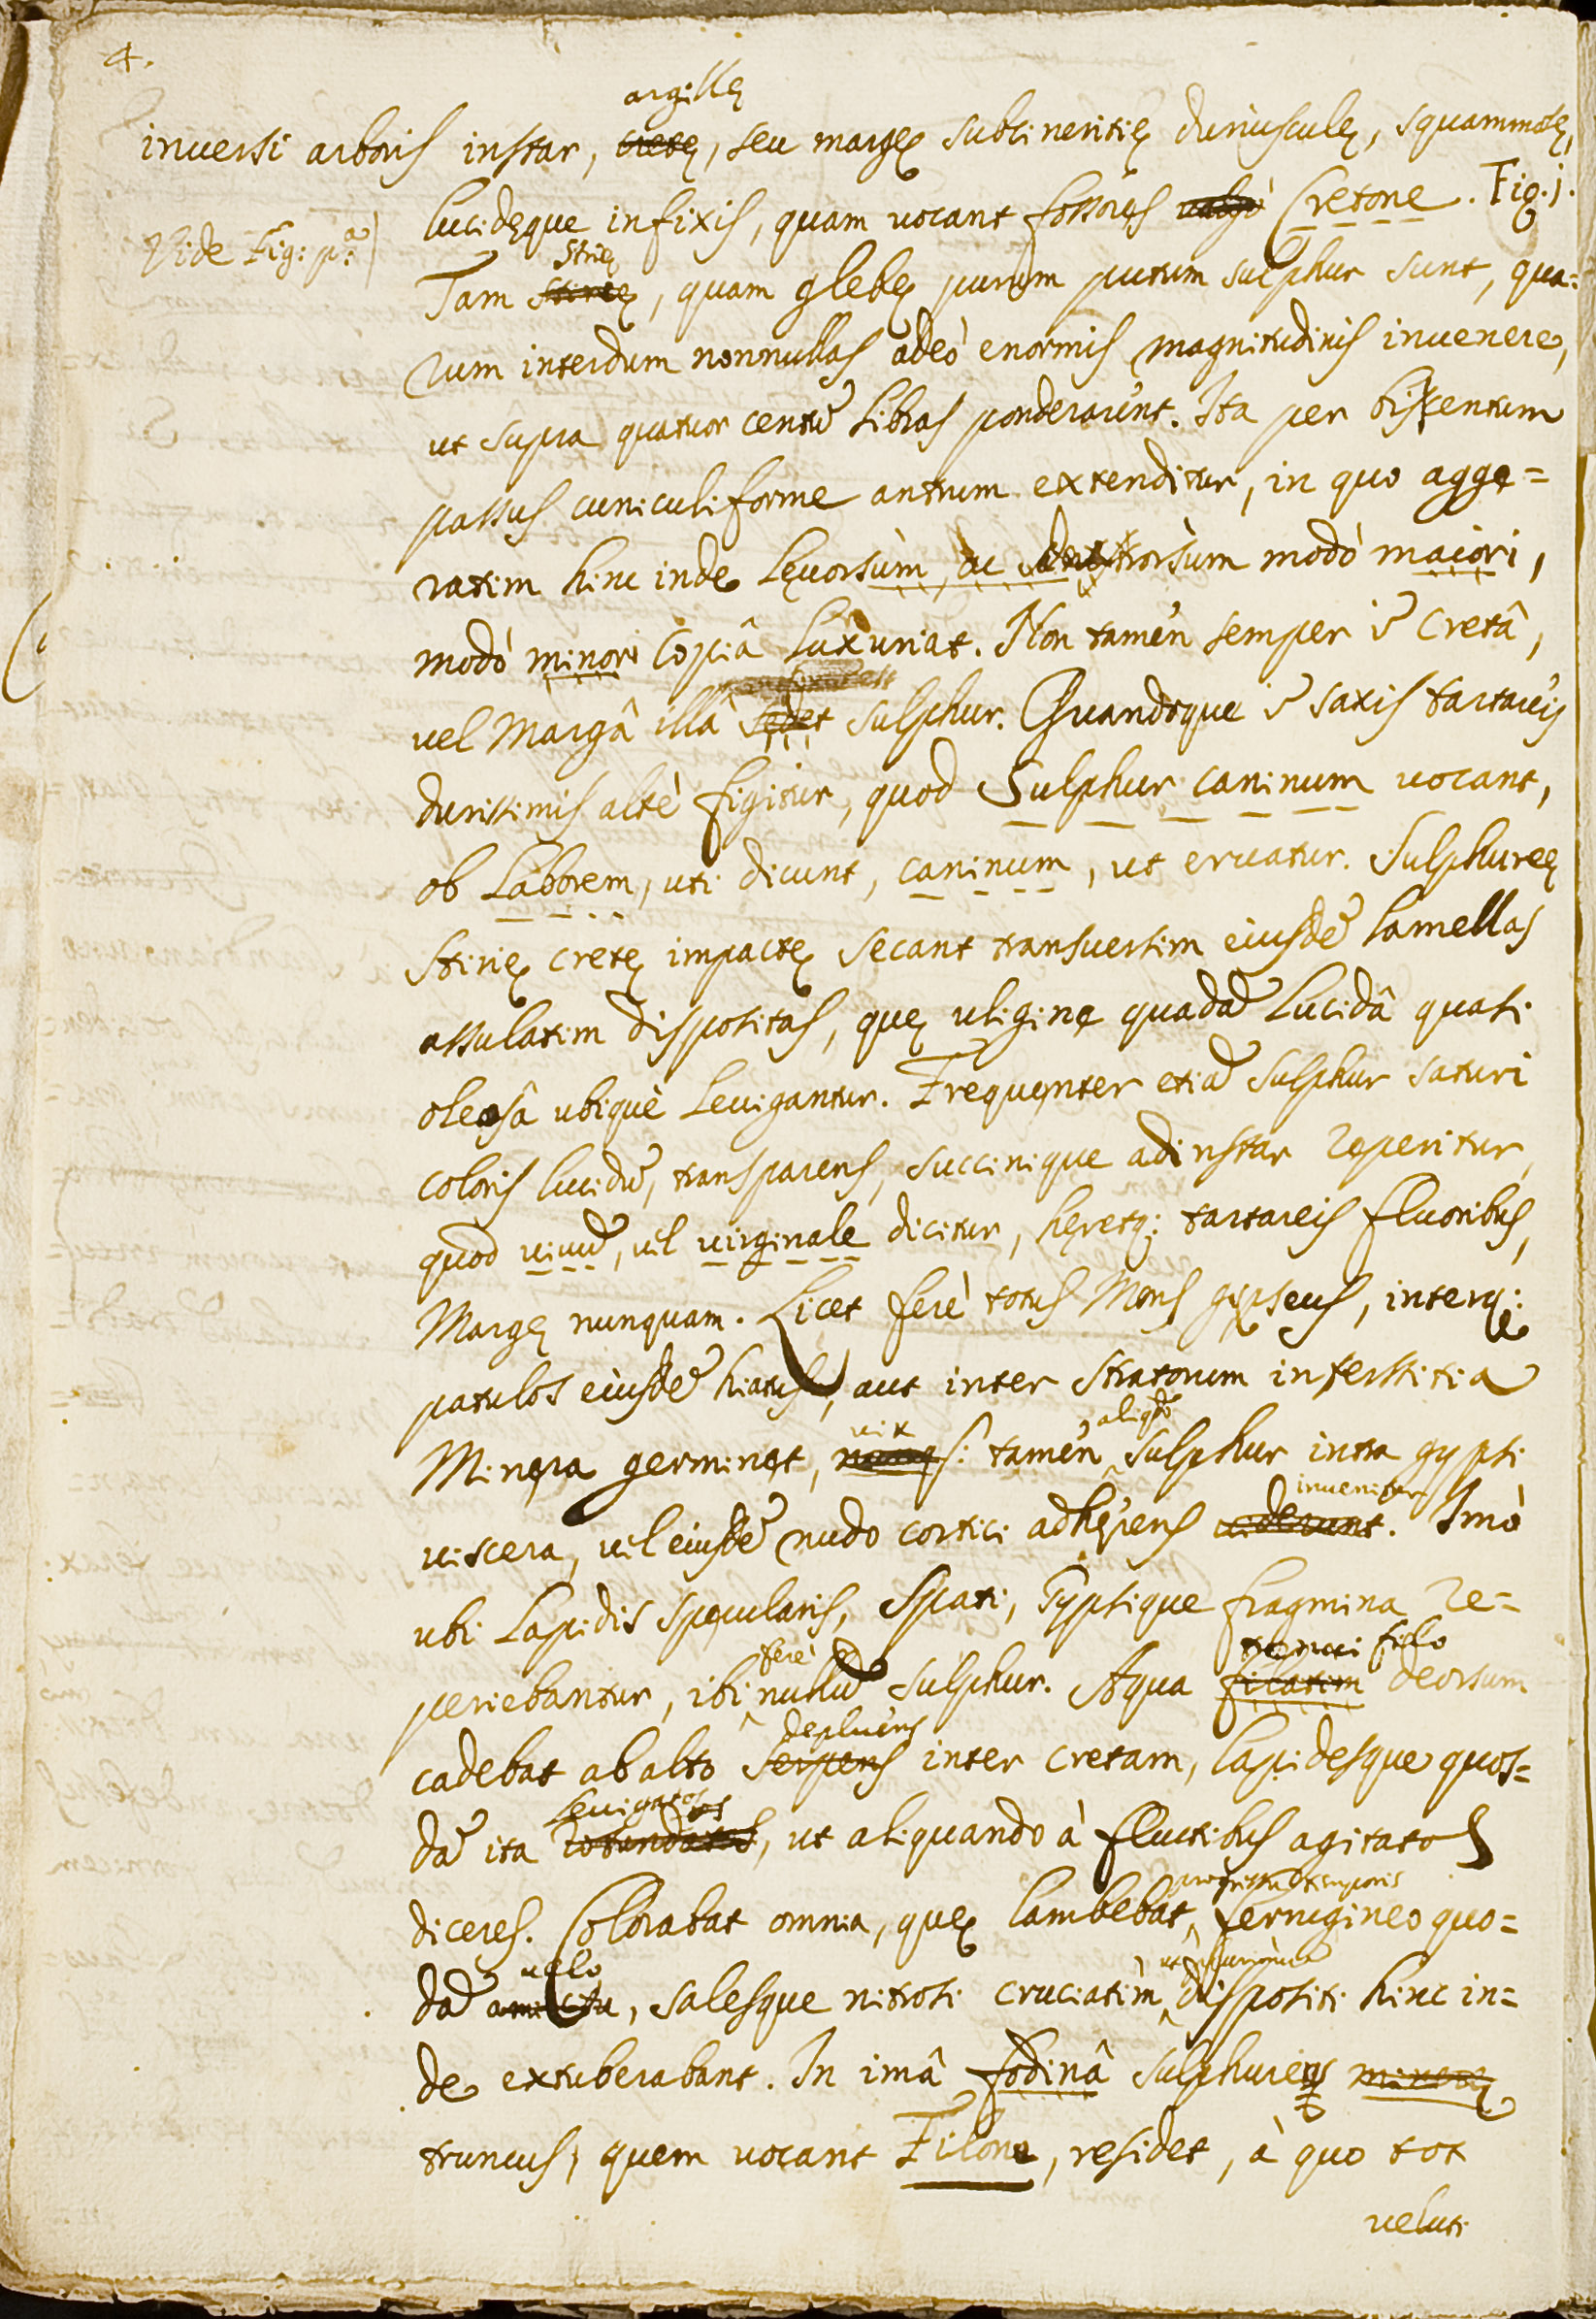 4.
argillę
inversi arboris instar, cretę, seu margę subcineritię duriusculę, squammosę,
lucidęque infixis, quam vocant fossores vulgò Cretone. Fig. j.
Vide Fig: pª:
Strię
Tam Stirię, quam glebę purum putum sulphur sunt, qua=
rum interdum nonnullas adeò enormis magnitudinis invenere,
ut supra quatuor centũ libras ponderarent. Ita per biscentum
passus cuniculiforme antrum extenditur, in quo agge=
ratim hinc inde lęvorsùm, ac dextrorsùm modò maiori,
modò minori copiâ luxuriat. Non tamen semper ĩ cretâ,
vel Margâ illâ sedet sulphur. Quandoque ĩ saxis tartareis
durissimis altè figitur, quod Sulphur caninum vocant,
ob Laborem, uti dicunt, caninum, ut eruatur. Sulphureę
Stirię cretę impactę secant transversim eiusdẽ lamellas
assulatim dispositas, quę uligine quadã lucidâ quasi
oleosâ ubiquè levigantur. Frequenter etiã sulphur saturi
coloris lucidũ, transparens, succinique adinstar reperitur,
quod vivũ, vel virginale dicitur, hęretq; tartareis fluoribus,
Margę nunquam. Licet ferè totus Mons gypseus, interq;
patulos eiusdẽ hiatus, aut inter stratorum interstitia
vix aliqdo
Minera germinet, nunqs: tamen sulphur intra gypsi
invenitur
viscera, vel eiusdẽ nudo cortici adhęrens viderunt. Imò
ubi Lapidis specularis, Spati, Gypsique fragmina re=
ferè tenui filo
periebantur, ibi nullũ sulphur. Aqua filatim deorsum
depluens
cadebat ab alto serpens inter cretam, lapidesque quos=
levigatos
dã ita rotundatos, ut aliquando à fluctibus agitatos
progressu temporis
diceres. Colorabat omnia, quę lambebat, ferrugineo quo=
velo ut plurimùm
dã amictu, salesque nitrosi cruciatim dispositi hinc in=
de extuberabant. In imâ fodinâ sulphureus minerę
truncus, quem vocant Filone, residet, à quo tot
veluti